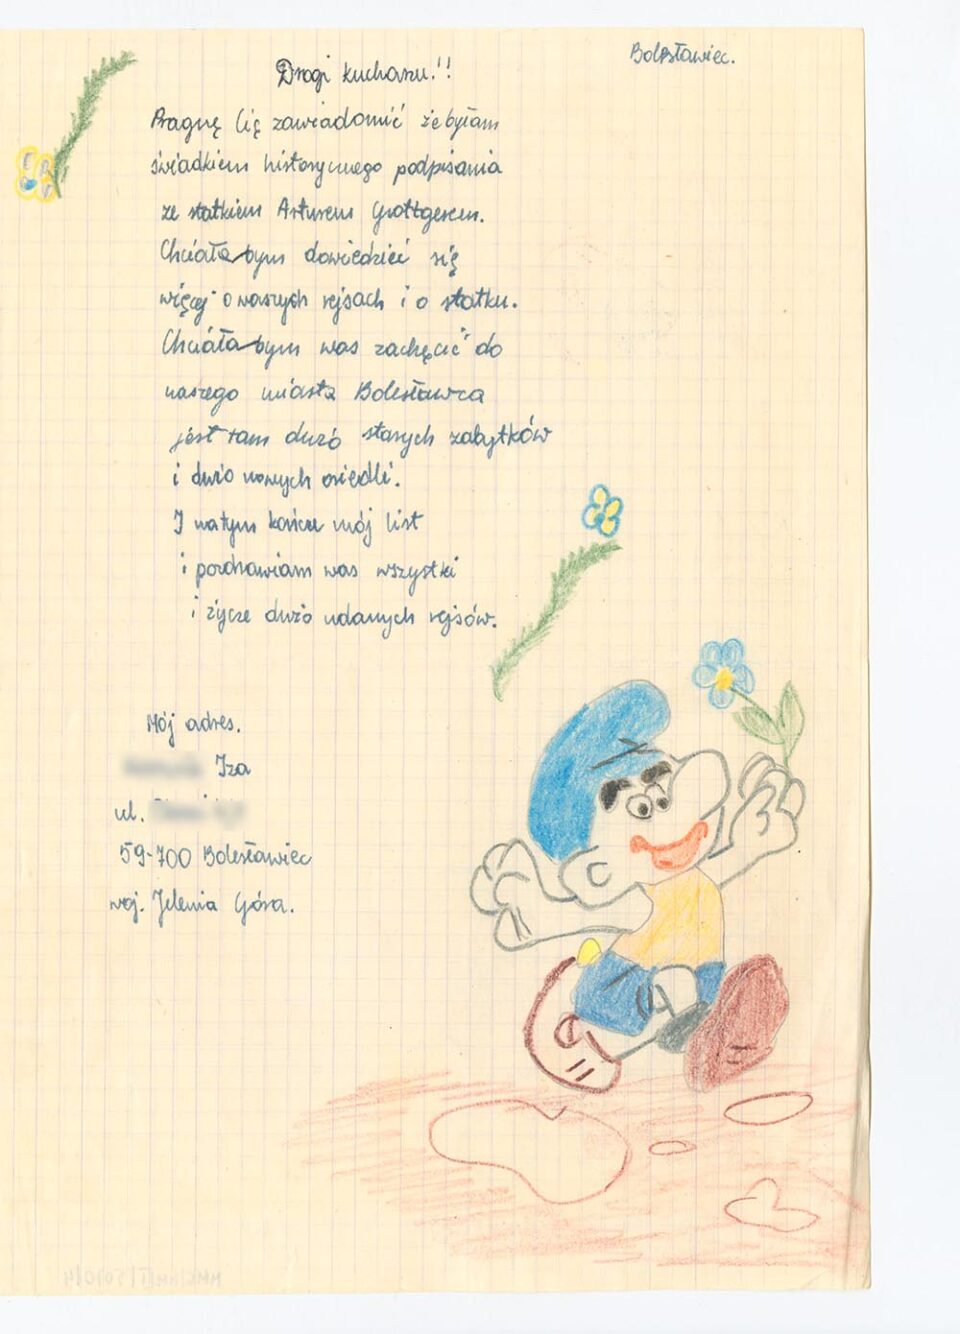 Bolesławiec.
Drogi kucharu!!
Pragnę Cię zawiadomić że byłam
świadkiem historycznego podpisania
ze statkiem Arturem Grottgerem.
Chciała bym dowiedzieć się
więcej o waszych rejsach i o statku.
Chciała bym was zachęcić do
naszego miasta Bolesławca
jest tam dużo starych zabytków
i dużo nowych osiedli.
I na tym kończe mój list
i pozdrawiam was wszystki
i życze dużo udanych rejsów.
Mój adres.
Iza
ul.
59-700 Bolesławiec
woj. Jelenia Góra.